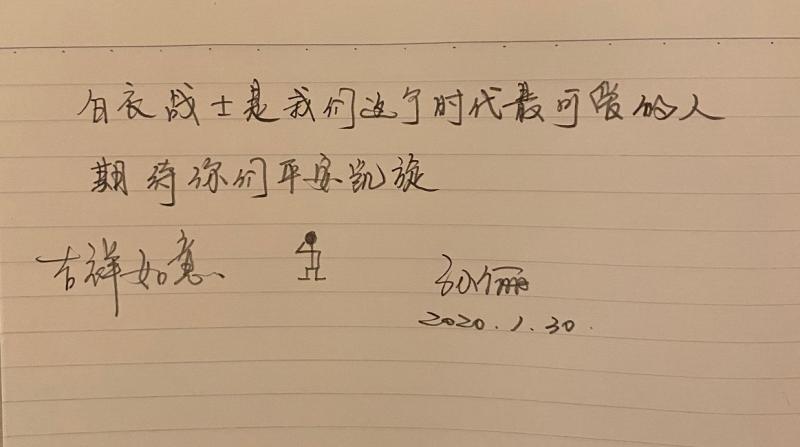 白衣战士是我们这个时代最可爱的人
期待你们平安凯旋
吉祥如意
孙俪
2020.1.30.